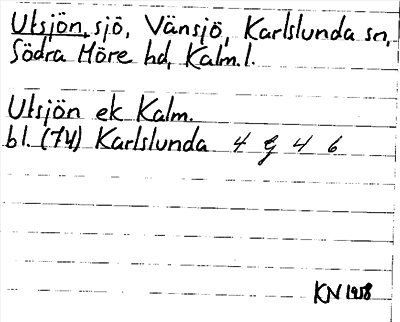 Utsjön, sjö, Vänsjö, Karlslunda sn,
Södra Möre hd, Kalm. l.
Utsjön ek Kalm.
bl. (74) Karlslunda 4 G 4 b
KN 1958